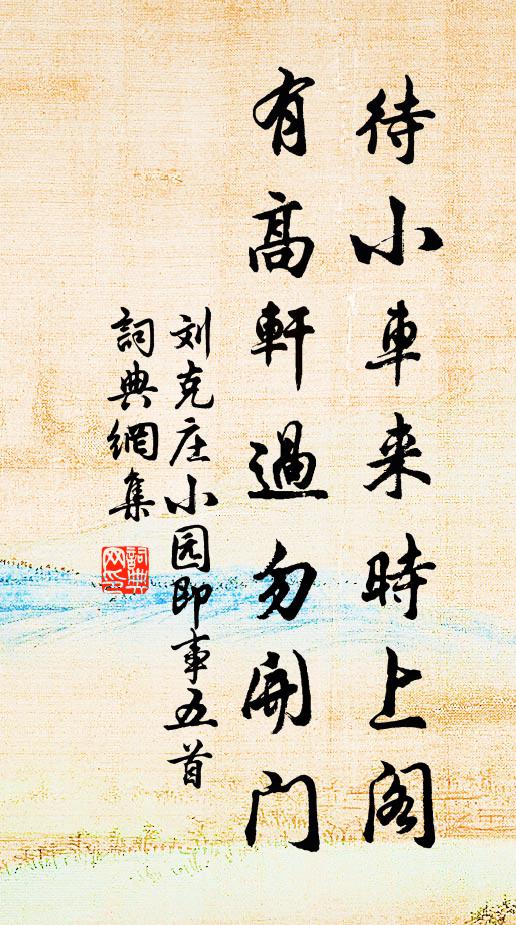 待小車来時上阁
有高軒過勿開门
刘克庄小园即事五首
詞典網集
詞典
网